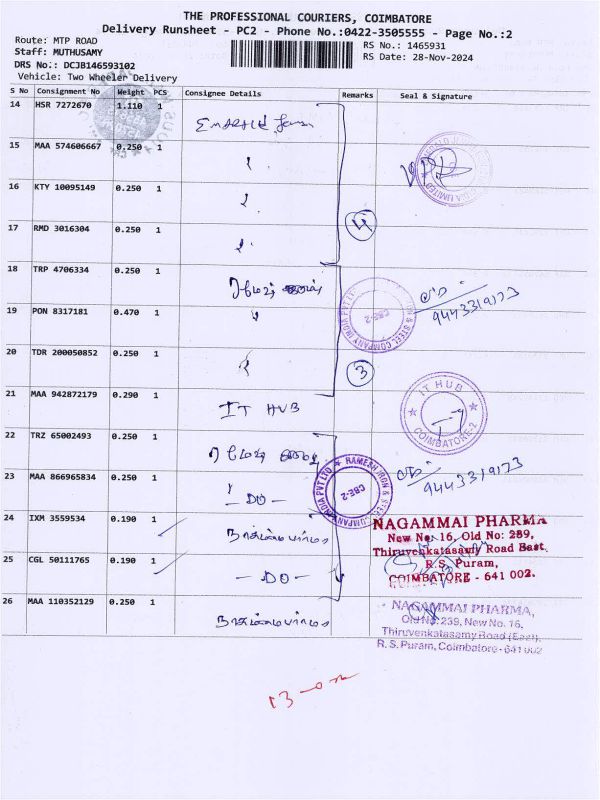 THE PROFESSIONAL COURIERS, COIMBATORE
Delivery Runsheet - PC2 - Phone No.:0422-3505555 - Page No.:2
Route: MTP ROAD
RS No.: 1465931
Staff: MUTHUSAMY
RS Date: 28-Nov-2024
DRS No.: DCJB146593102
Vehicle: Two Wheeler Delivery
S No Consignment No Weight PCS Consignee Details Remarks Seal & Signature
14 HSR 7272670 1.110 1
15 MAA 574606667 0.250 1
16 KTY 10095149 0.250 1
4
17 RMD 3016304 0.250 1
18 TRP 4706334 0.250 1
9443319123
19 PON 8317181 0.470 1
CBE-2
& STEEL COMPANY INDIA PVT LTD
20 TDR 200050852 0.250 1
3
21 MAA 942872179 0.290 1 IT HUB
IT HUB
COIMBATORE-2
22 TRZ 65002493 0.250 1
9443319123
23 MAA 866965834 0.250 1 - DO -
RAMESH IRON & STEEL COMPANY INDIA PVT LTD
CBE-2
24 IXM 3559534 0.190 1
NAGAMMAI PHARMA
New No: 16, Old No: 239,
Thiruvenkatasamy Road East,
R.S. Puram,
COIMBATORE - 641 002.
25 CGL 50111765 0.190 1 - DO -
26 MAA 110352129 0.250 1
NAGAMMAI PHARMA,
Old No:239, New No. 16.
Thiruvenkatasamy Road (East),
R.S. Puram, Coimbatore-641 002